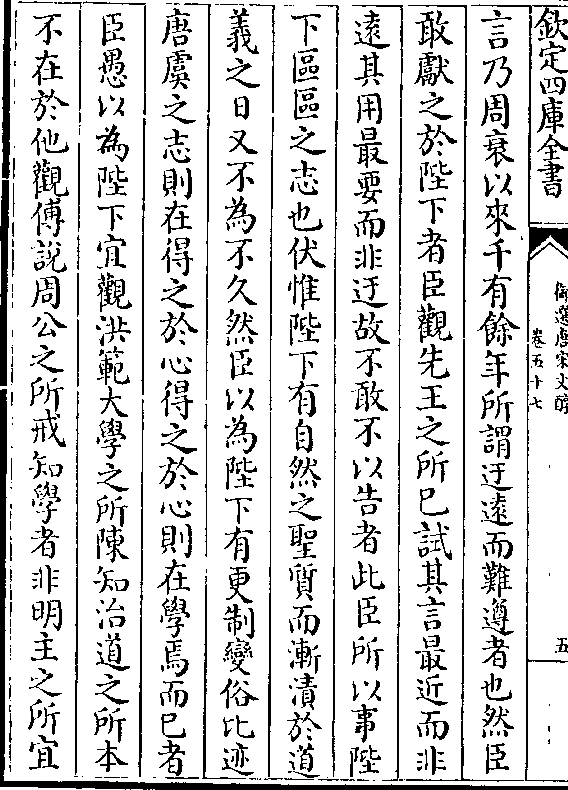 欽定四庫全書
御選唐宋文醇
卷五十七
五
言乃周衰以來千有餘年所謂迂遠而難遵者也然臣
敢獻之於陛下者臣觀先王之所已試其言最近而非
遠其用最要而非迂故不敢不以告者此臣所以事陛
下區區之志也伏惟陛下有自然之聖質而漸漬於道
義之日又不為不久然臣以為陛下有更制變俗比迹
唐虞之志則在得之於心得之於心則在學焉而已者
臣愚以為陛下宜觀洪範大學之所陳知治道之所本
不在於他觀傅說周公之所戒知學者非明主之所宜